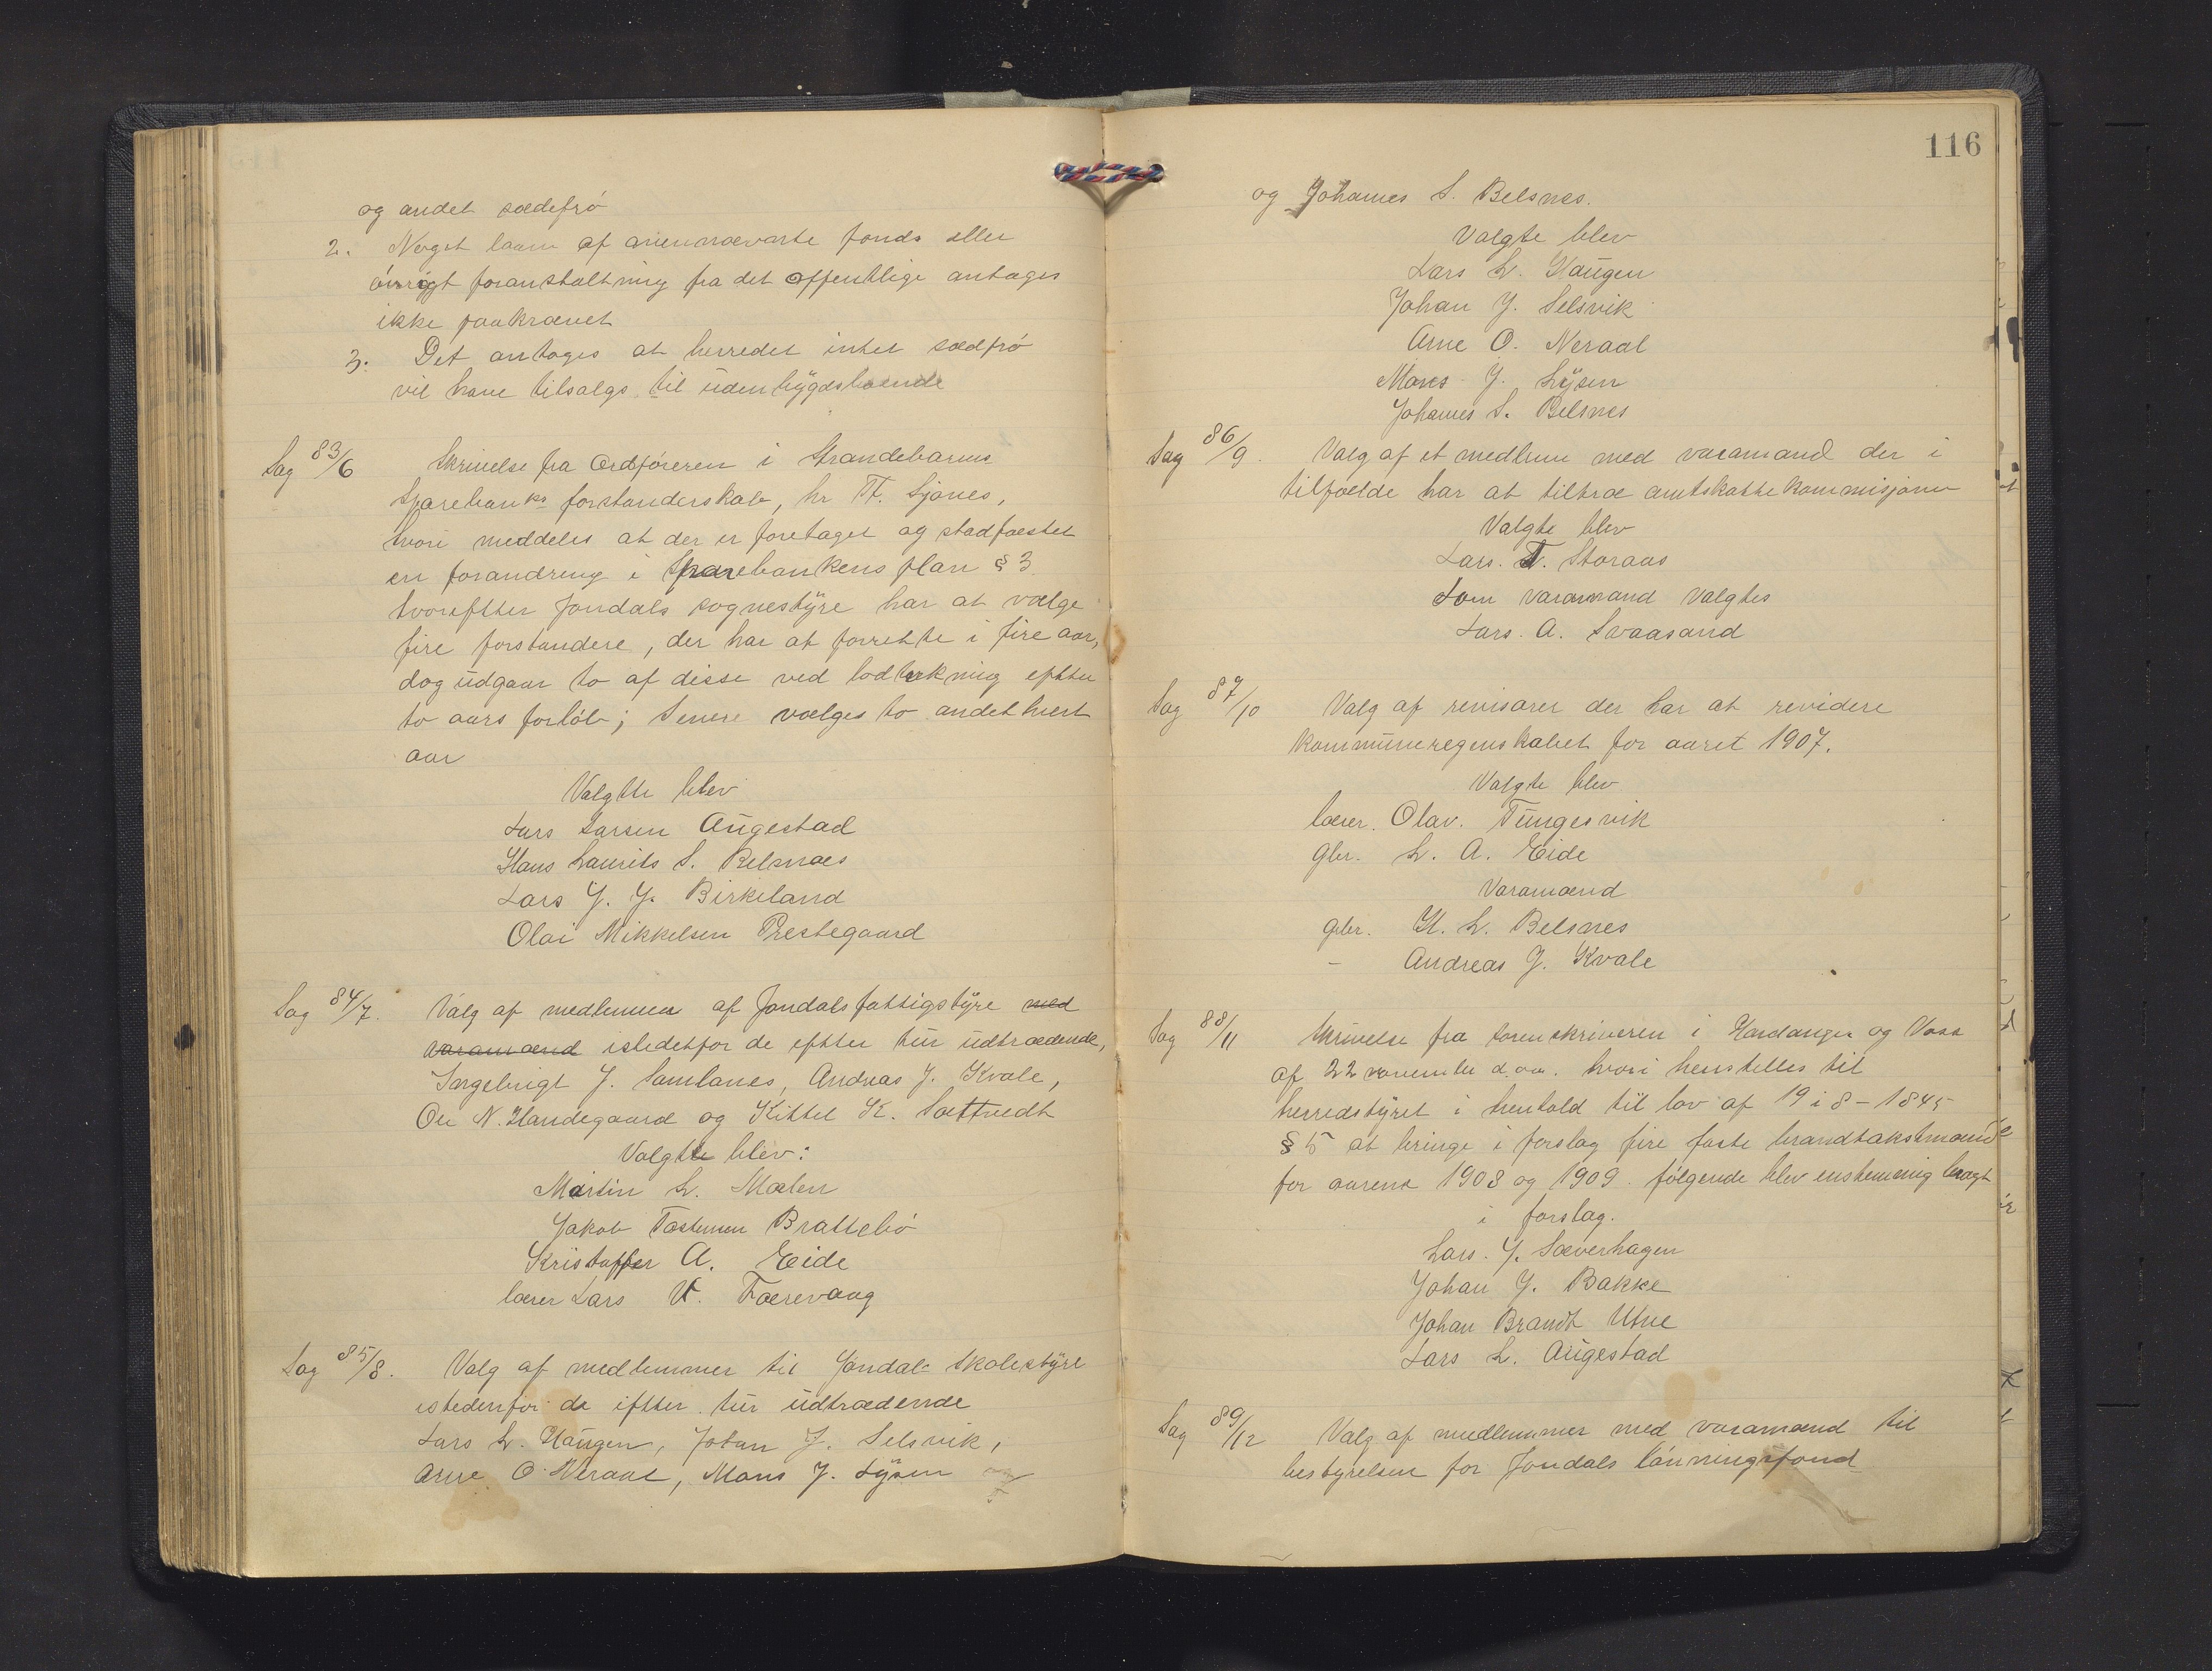 og andet sædefrø
2. Noget laan af annammevarte fonds eller
øvrigt foranstaltning fra det offentlige antages
ikke paakrævet
3. Det antages at herredet intet sædfrø
vil have tilsalgs til udenbygdsboende
Sag 83/6 Skrivelse fra Ordføreren i Strandebarms
Sparebanks forstanderskab, hr T. Sjones,
hvori meddeles at der er foretaget og stadfæstet
en forandring i Sparebankens plan § 3
hvorefter Jondals sognestyre har at vælge
fire forstandere, der har at forrette i fire aar,
dog udgaar to af disse ved lodtrekning efter
to aars forløb; Senere vælges to andethvert
aar
Valgte blev
Lars Larsen Augestad
Hans Laurits S. Belsnæs
Lars J. J. Birkeland
Olai Mikkelsen Prestegaard
Sag 84/7. Valg af medlemmer af Jondals fattigstyre med
varamænd istedetfor de efter tur udtrædende,
Ingebrigt J. Samlanes, Andreas J. Kvale,
Ole N. Handegaard og Kittel K. Sættvedt
Valgte blev:
Martin L. Mælen
Jakob Tostensen Brattebø
Kristoffer A. Eide
lærer Lars V. Færevaag
Sag 85/8. Valg af medlemmer til Jondals Skolestyre
istedenfor de efter tur udtrædende
Lars L. Haugen, Johan J. Selsvik,
Arne O. Neraal, Mons J. Lysen
116
og Johannes S. Belsnes.
Valgte blev
Lars L. Haugen
Johan J. Selsvik
Arne O. Neraal
Mons J. Lysen
Johannes S. Belsnes
Sag 86/9. Valg af et medlem med varamand der i
tilfælde har at tiltræ amtskattekommisjonen
Valgte blev
Lars. T. Storaas
Som varamand valgtes
Lars. A. Svaasand
Sag 87/10 Valg af revisorer der har at revidere
kommuneregenskabet for aaret 1907.
Valgte blev
lærer. Olav. Tungesvik
gbr. L. A. Eide
Varamænd
gbr. H. L. Belsnes
- Andreas J. Kvale
Sag 88/11 Skrivelse fra sorenskriveren i Hardanger og Voss
af 22 november d.aa. hvori henstilles til
herredstyret i henhold til lov af 19 i 8 - 1845
§ 5 at bringe i forslag fire faste brandtakstmænd
for aarene 1908 og 1909. følgende blev enstemmig bragt
i forslag.
Lars. J. Sæverhagen
Johan J. Bakke
Johan Brandt Utne
Lars L. Augestad
Sag 89/12 Valg af medlemmer med varamænd til
bestyrelsen for Jondals lønningsfond